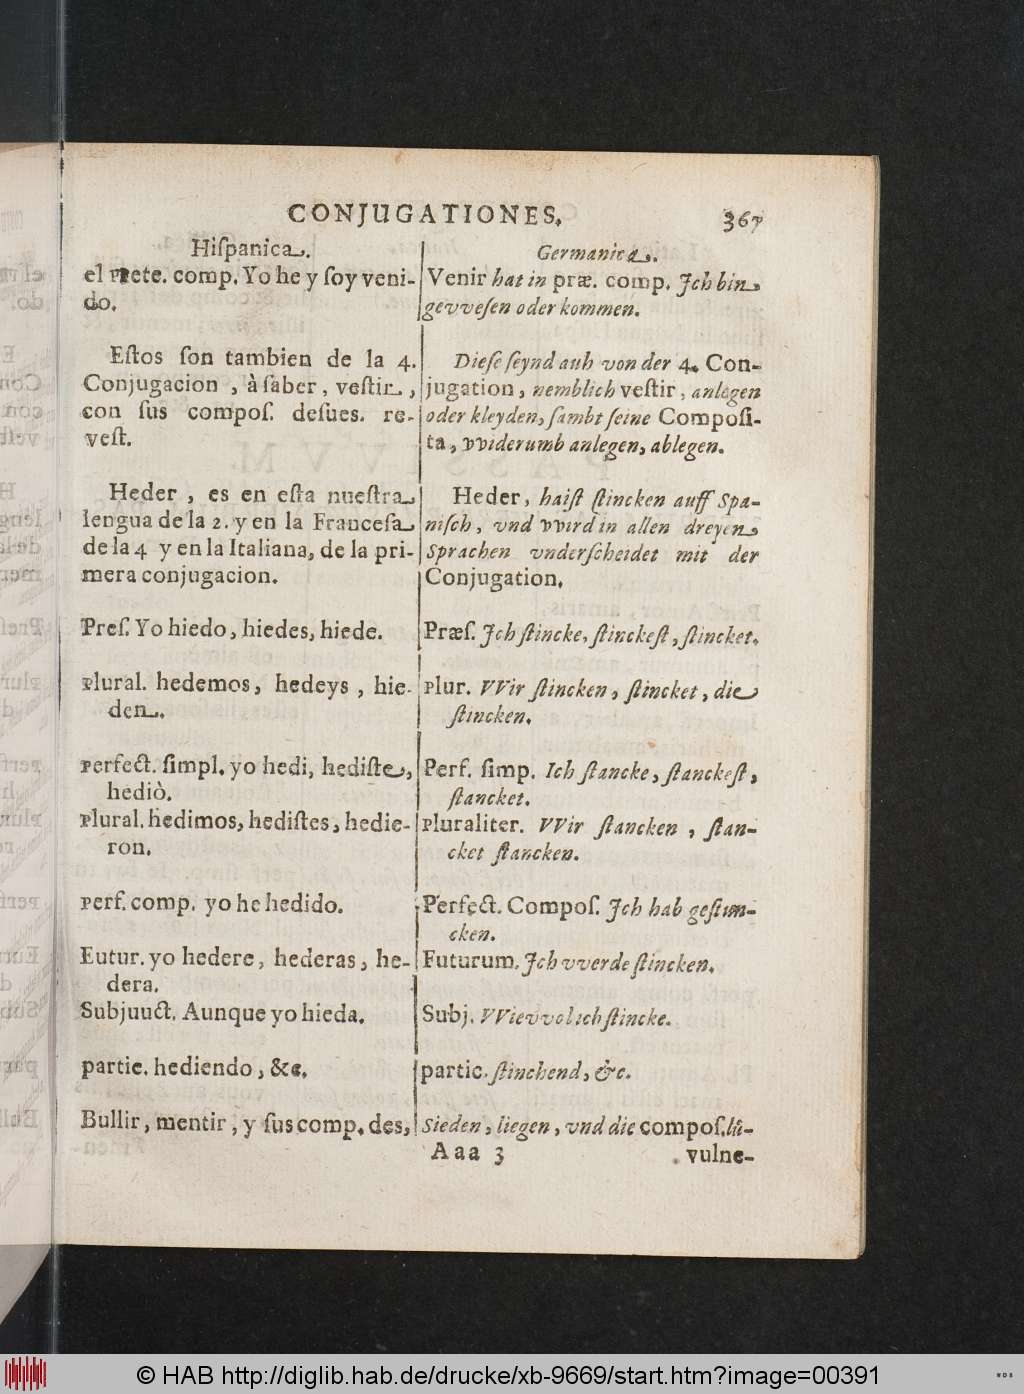 CONJUGATIONES. 367
Hiſpanica.
el prete. comp. Yo he y ſoy veni-
do.
Eſtos ſon tambien de la 4.
Conjugacion , à ſaber , veſtir ,
con ſus compoſ. deſues. re-
veſt.
Heder , es en eſta nueſtra
lengua de la 2. y en la Franceſa
de la 4 y en la Italiana, de la pri-
mera conjugacion.
Preſ. Yo hiedo, hiedes, hiede.
Plural. hedemos, hedeys , hie-
den.
Perfect. ſimpl. yo hedi, hediſte,
hediò.
Plural. hedimos, hediſtes, hedie-
ron.
Perf. comp. yo he hedido.
Eutur. yo hedere, hederas, he-
dera.
Subjuuct. Aunque yo hieda.
partic. hediendo, &c.
Bullir, mentir, y ſus comp. des,
Germanica.
Venir hat in præ. comp. Jch bin
gevveſen oder kommen.
Dieſe ſeynd auh von der 4. Con-
jugation, nemblich veſtir, anlegen
oder kleyden, ſambt ſeine Compoſi-
ta, vviderumb anlegen, ablegen.
Heder, haiſt ſtincken auff Spa-
niſch, vnd vvird in allen dreyen
Sprachen vnderſcheidet mit der
Conjugation.
Præſ. Jch ſtincke, ſtinckeſt, ſtincket.
Plur. VVir ſtincken, ſtincket, die
ſtincken.
Perf. ſimp. Ich ſtancke, ſtanckeſt,
ſtancket.
Pluraliter. VVir ſtancken , ſtan-
cket ſtancken.
Perfect. Compoſ. Jch hab geſtun-
cken.
Futurum. Jch vverde ſtincken.
Subj. VVievvol ich ſtincke.
partic. ſtinchend, &c.
Sieden, liegen, vnd die compoſ. lû-
Aaa 3 vulne-
© HAB http://diglib.hab.de/drucke/xb-9669/start.htm?image=00391